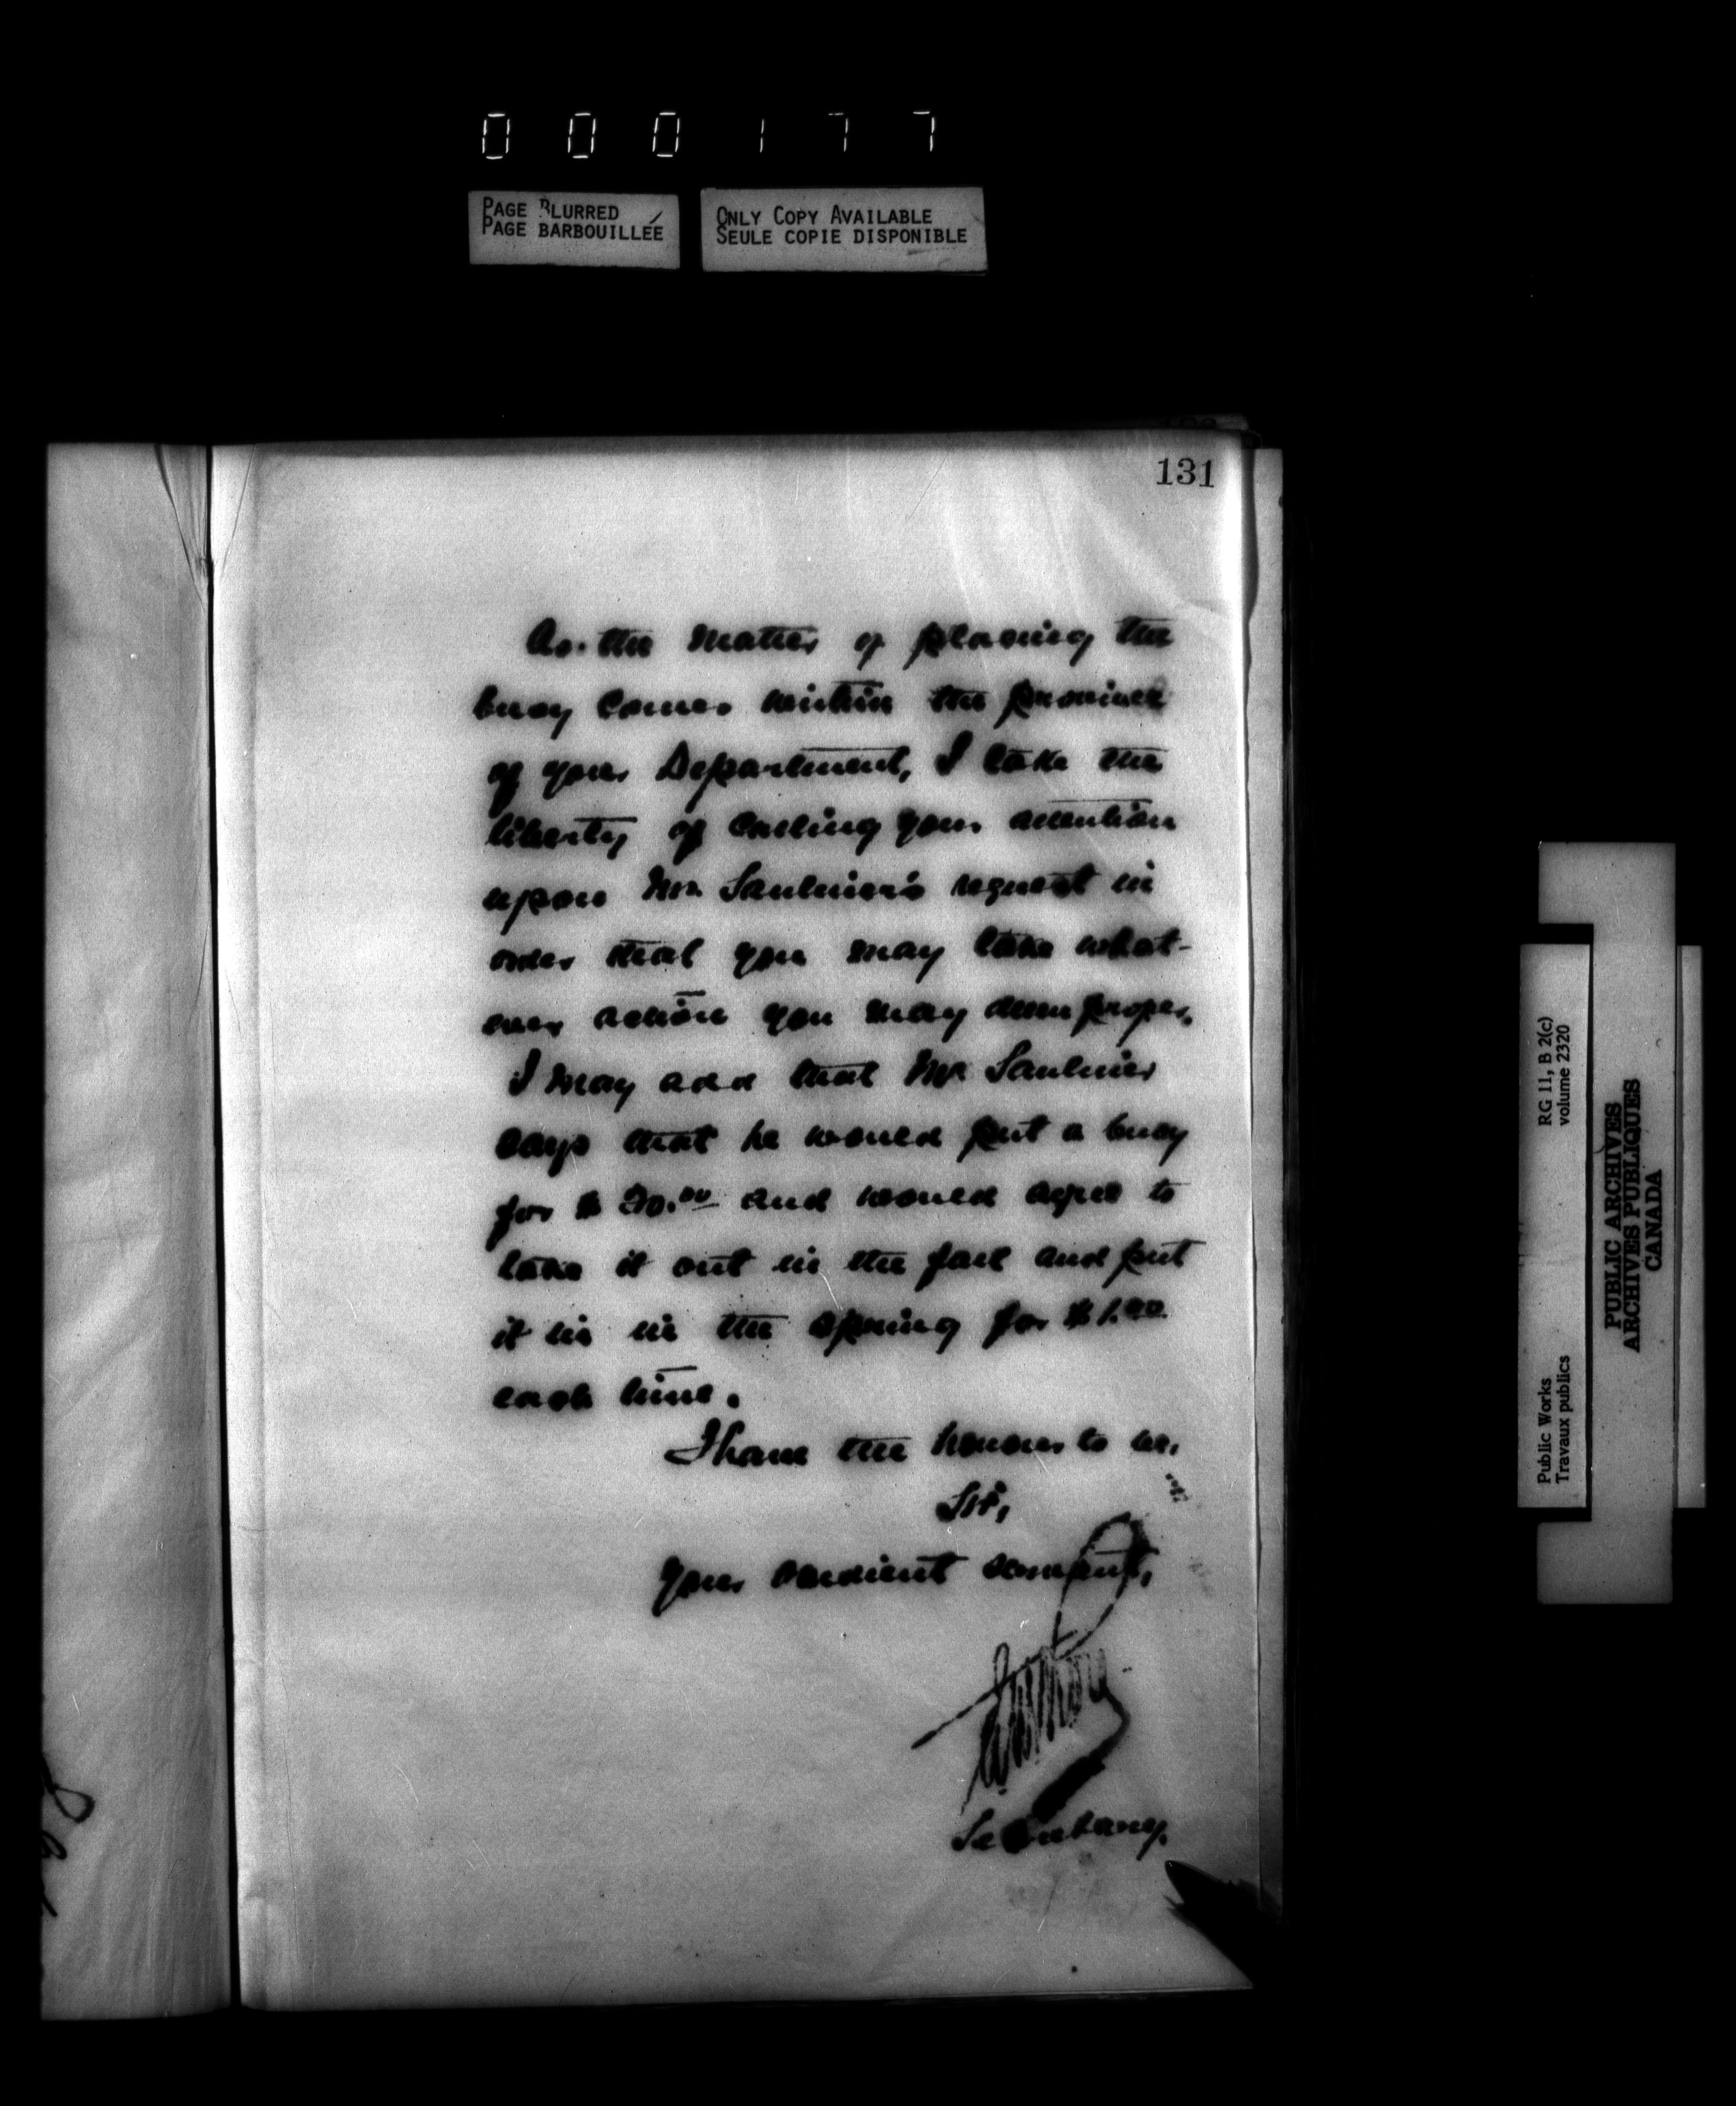 000177
PAGE BLURRED
PAGE BARBOUILLÉE
ONLY COPY AVAILABLE
SEULE COPIE DISPONIBLE
131
As the matter of placing the
buoy comes within the province
of your Department, I take the
liberty of calling your attention
upon Mr. Saulnier's request in
order that you may take what-
ever action you may deem proper.
I may add that Mr Saulnier
says that he would put a buoy
for $ 20.00 and would agree to
take it out in the fall and put
it in in the spring for $1.00
each time.
I have the honour to be,
Sir,
Your obedient servant,
Secretary.
Public Works
Travaux publics
RG 11, B 2(c)
volume 2320
PUBLIC ARCHIVES
ARCHIVES PUBLIQUES
CANADA